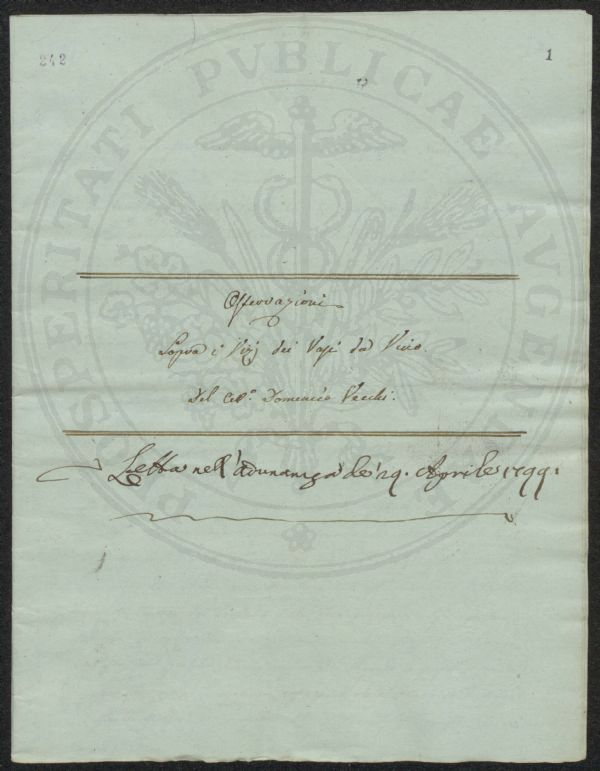 242
1
PROSPERITATI PVBLICAE AVGENDAE
Osservazioni
Sopra i Vizj dei Vasi da Vino.
Del Citt.o Domenico Vecchi.
Letta nell'adunanza de' 29. Aprile 1799.